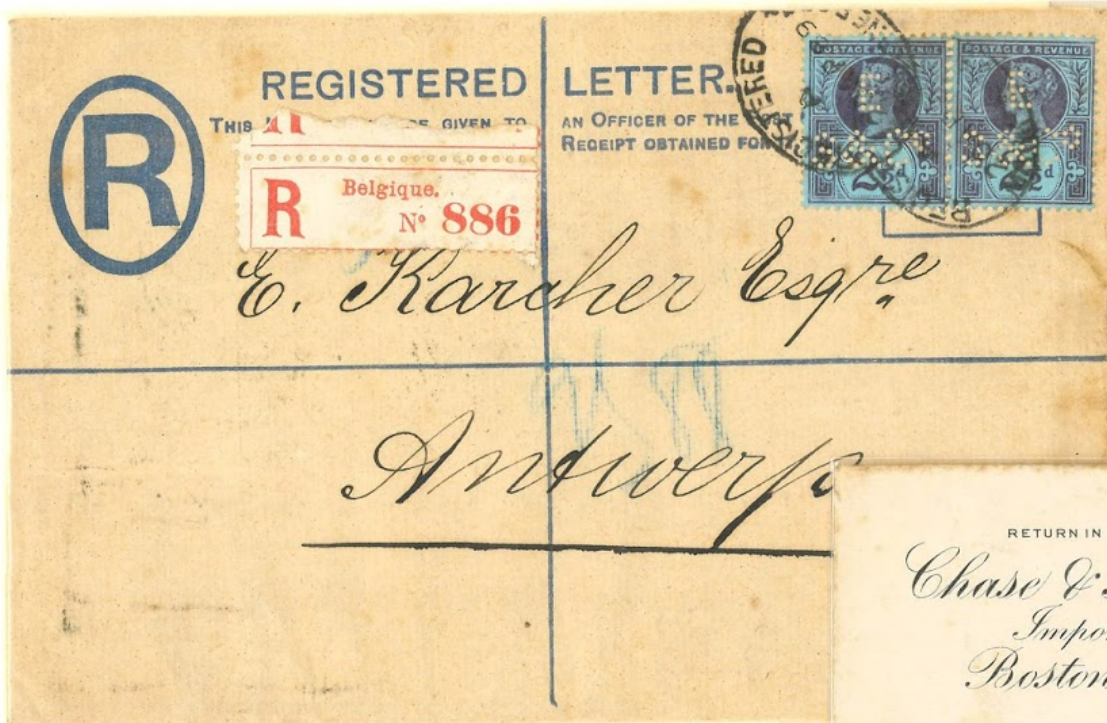 REGISTERED LETTER.
THIS GIVEN TO AN OFFICER OF THE POST
RECEIPT OBTAINED FOR
R
R Belgique.
Nº 886
POSTAGE & REVENUE POSTAGE & REVENUE
REGISTERED
E. Karcher Esqre
Antwerp
RETURN IN
Chase &
Impo
Boston